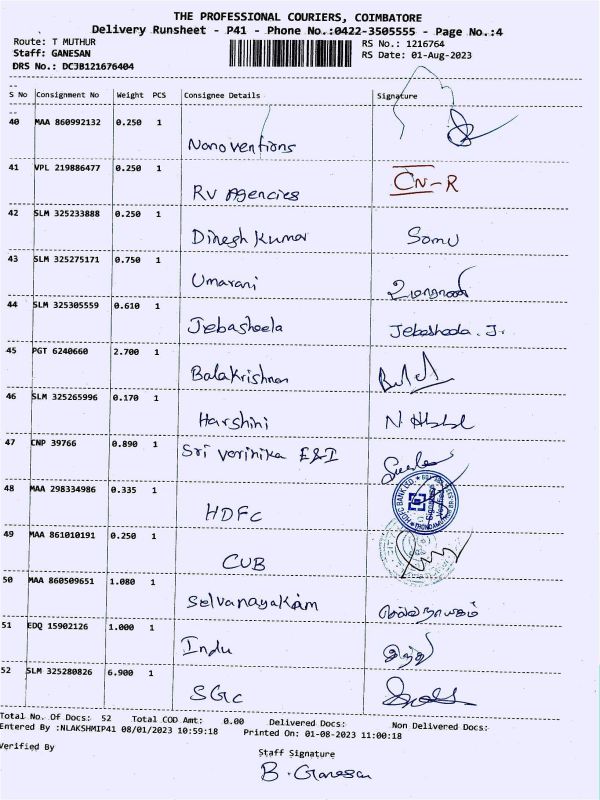 THE PROFESSIONAL COURIERS, COIMBATORE
Delivery Runsheet - P41 - Phone No.:0422-3505555 - Page No.:4
Route: T MUTHUR
RS No.: 1216764
Staff: GANESAN
RS Date: 01-Aug-2023
DRS No.: DCJB121676404
S No Consignment No Weight PCS Consignee Details Signature
40 MAA 860992132 0.250 1
Nanoventions
41 VPL 219886477 0.250 1
RV Agencies CN-R
42 SLM 325233888 0.250 1
Dinesh Kumar Somu
43 SLM 325275171 0.750 1
Umarani உமாராணி
44 SLM 325305559 0.610 1
Jebasheela Jebasheela. J.
45 PGT 6240660 2.700 1
Balakrishnan
46 SLM 325265996 0.170 1
Harshini
47 CNP 39766 0.890 1
Sri Verinika E&I
48 MAA 298334986 0.335 1
HDFC
HDFC BANK
49 MAA 861010191 0.250 1
CUB
50 MAA 860509651 1.080 1
Selvanayakam செல்வநாயகம்
51 EDQ 15902126 1.000 1
Indu இந்து
52 SLM 325280826 6.900 1
SGC
Total No. Of Docs: 52 Total COD Amt: 0.00 Delivered Docs: Non Delivered Docs:
Entered By :NLAKSHMIP41 08/01/2023 10:59:18 Printed On: 01-08-2023 11:00:18
Verified By
Staff Signature
B. Ganesan